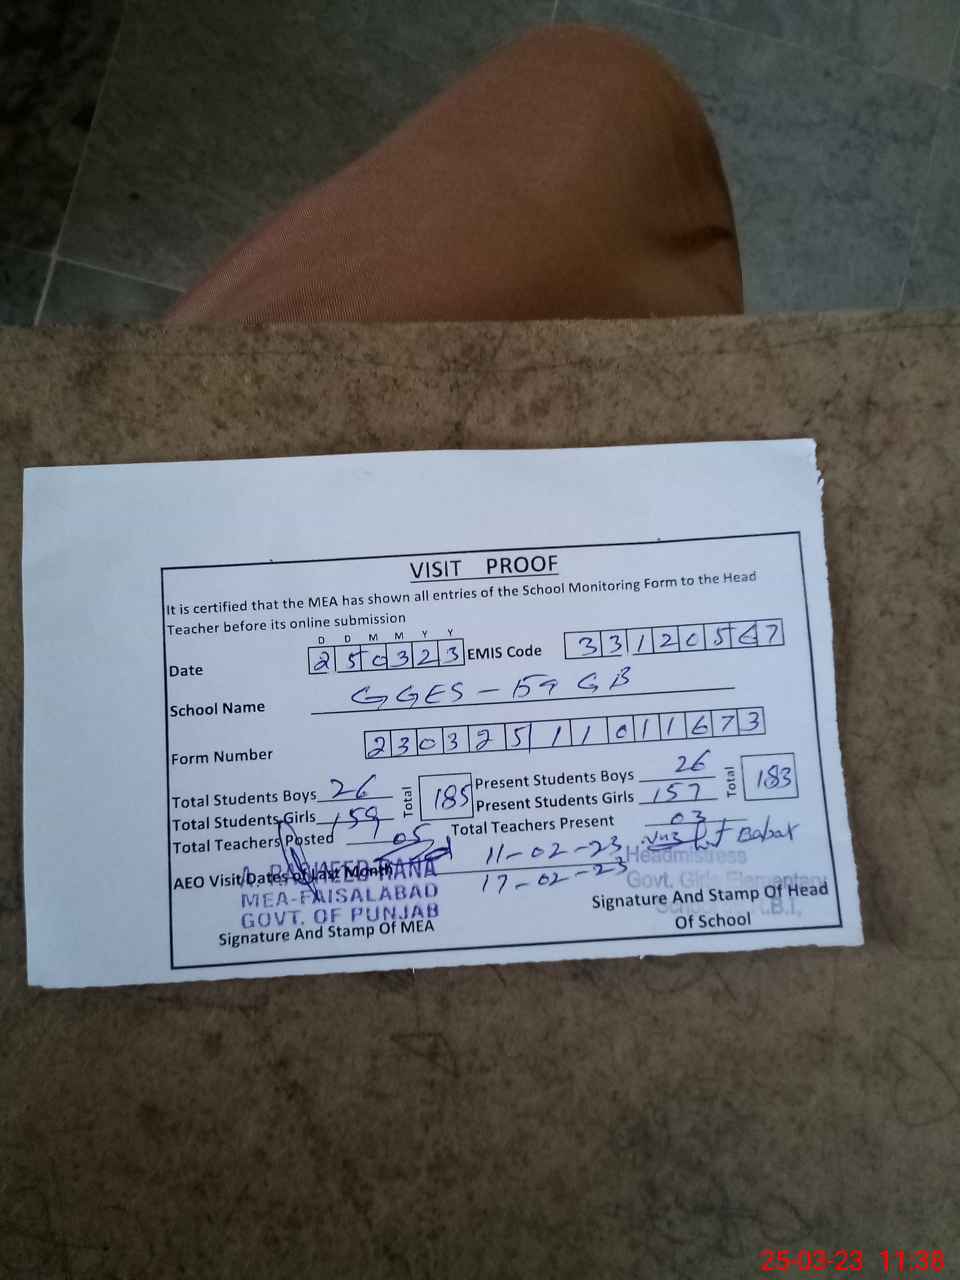 VISIT PROOF
It is certified that the MEA has shown all entries of the School Monitoring Form to the Head
Teacher before its online submission
D D M M Y Y
Date 2 5 0 3 2 3 EMIS Code 3 3 1 2 0 5 6 7
School Name GGES - 159 GB
Form Number 2 3 0 3 2 5 1 1 0 1 1 6 7 3
Total Students Boys 26 Total 185 Present Students Boys 26 Total 183
Total Students Girls 159 Present Students Girls 157
Total Teachers Posted 05 Total Teachers Present 03
AEO Visit Dates of last Month 11-02-23, 17-02-23
A. RASHEED RANA
MEA-FAISALABAD
GOVT. OF PUNJAB
Signature And Stamp Of MEA
Babar
Headmistress
Govt. Girls Elementary
Signature And Stamp Of Head
Of School
25-03-23 11:38